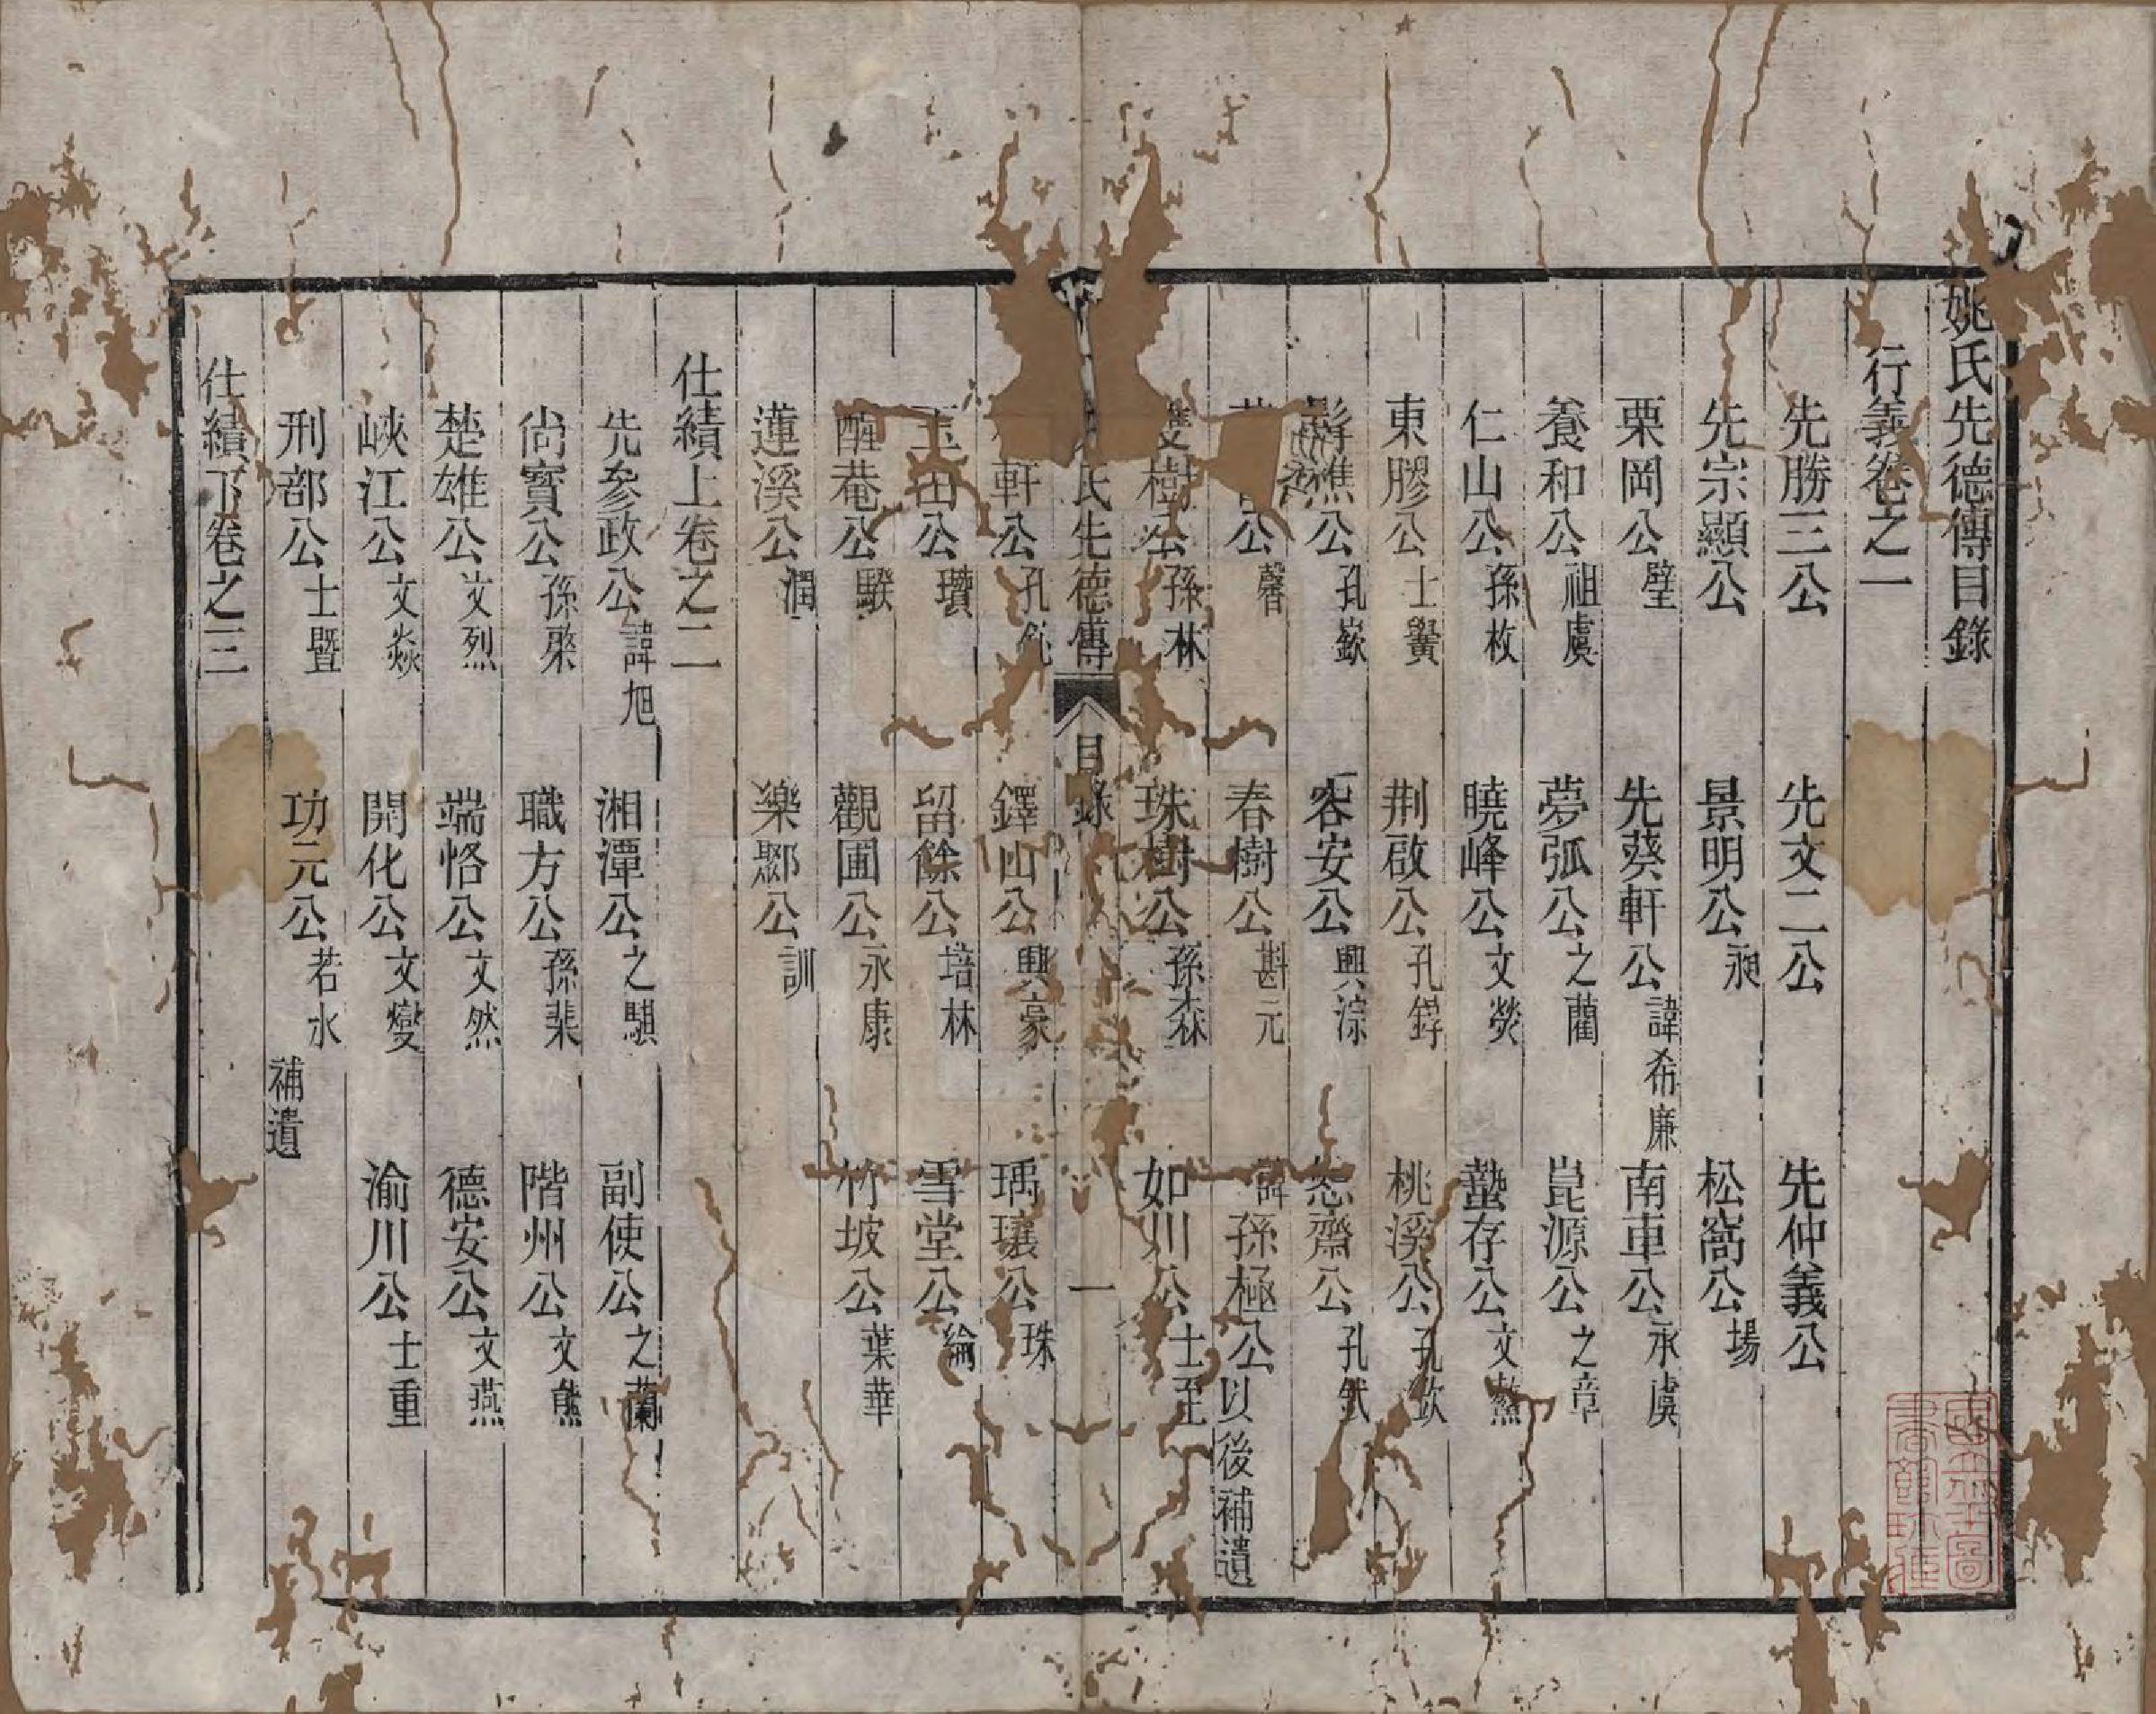 姚氏先德傳目錄
行義卷之一
先勝三公 先文二公 先仲義公
先宗顯公 景明公 昶 松窩公 場
栗岡公 璧 先葵軒公 諱希廉 南車公 承虞
養和公 祖虞 夢弧公 之藺 崑源公 之章
仁山公 孫枚 曉峰公 文熒 蟄存公 文鰲
東膠公 士黌 荆啟公 孔鋝 桃溪公 孔欽
樵公 孔嶔 客安公 興淙 恕齋公 孔鉽
公 馨 春樹公 斟元 諱孫極公 以後補遺
雙樹公 孫林 珠樹公 孫森 如川公 士至
姚氏先德傳 目錄 一
軒公 孔 鐸山公 興豪 瑀瓖公 珠
玉田公 瓚 留餘公 培林 雪堂公 綸
醒菴公 騤 觀圃公 永康 竹坡公 葉華
蓮溪公 潤 樂鄹公 訓
仕績上卷之二
先參政公 諱旭 湘潭公 之騏 副使公 之蘭
尚寶公 孫棨 職方公 孫棐 階州公 文熊
楚雄公 文烈 端恪公 文然 德安公 文燕
峽江公 文焱 開化公 文燮 渝川公 士重
刑部公 士暨 功元公 若水 補遺
仕績下卷之三